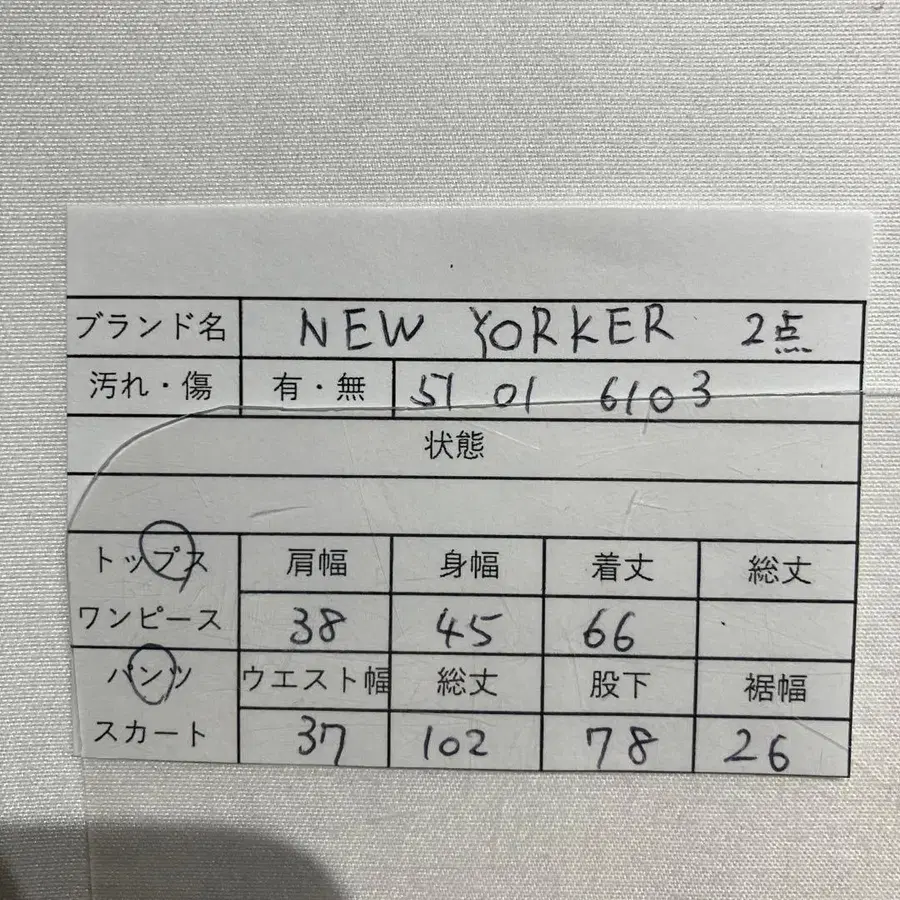 ブランド名 NEW YORKER 2点
汚れ・傷 有・無 51 01 6103
状態
トップス 肩幅 身幅 着丈 総丈
ワンピース 38 45 66
パンツ ウエスト幅 総丈 股下 裾幅
スカート 37 102 78 26